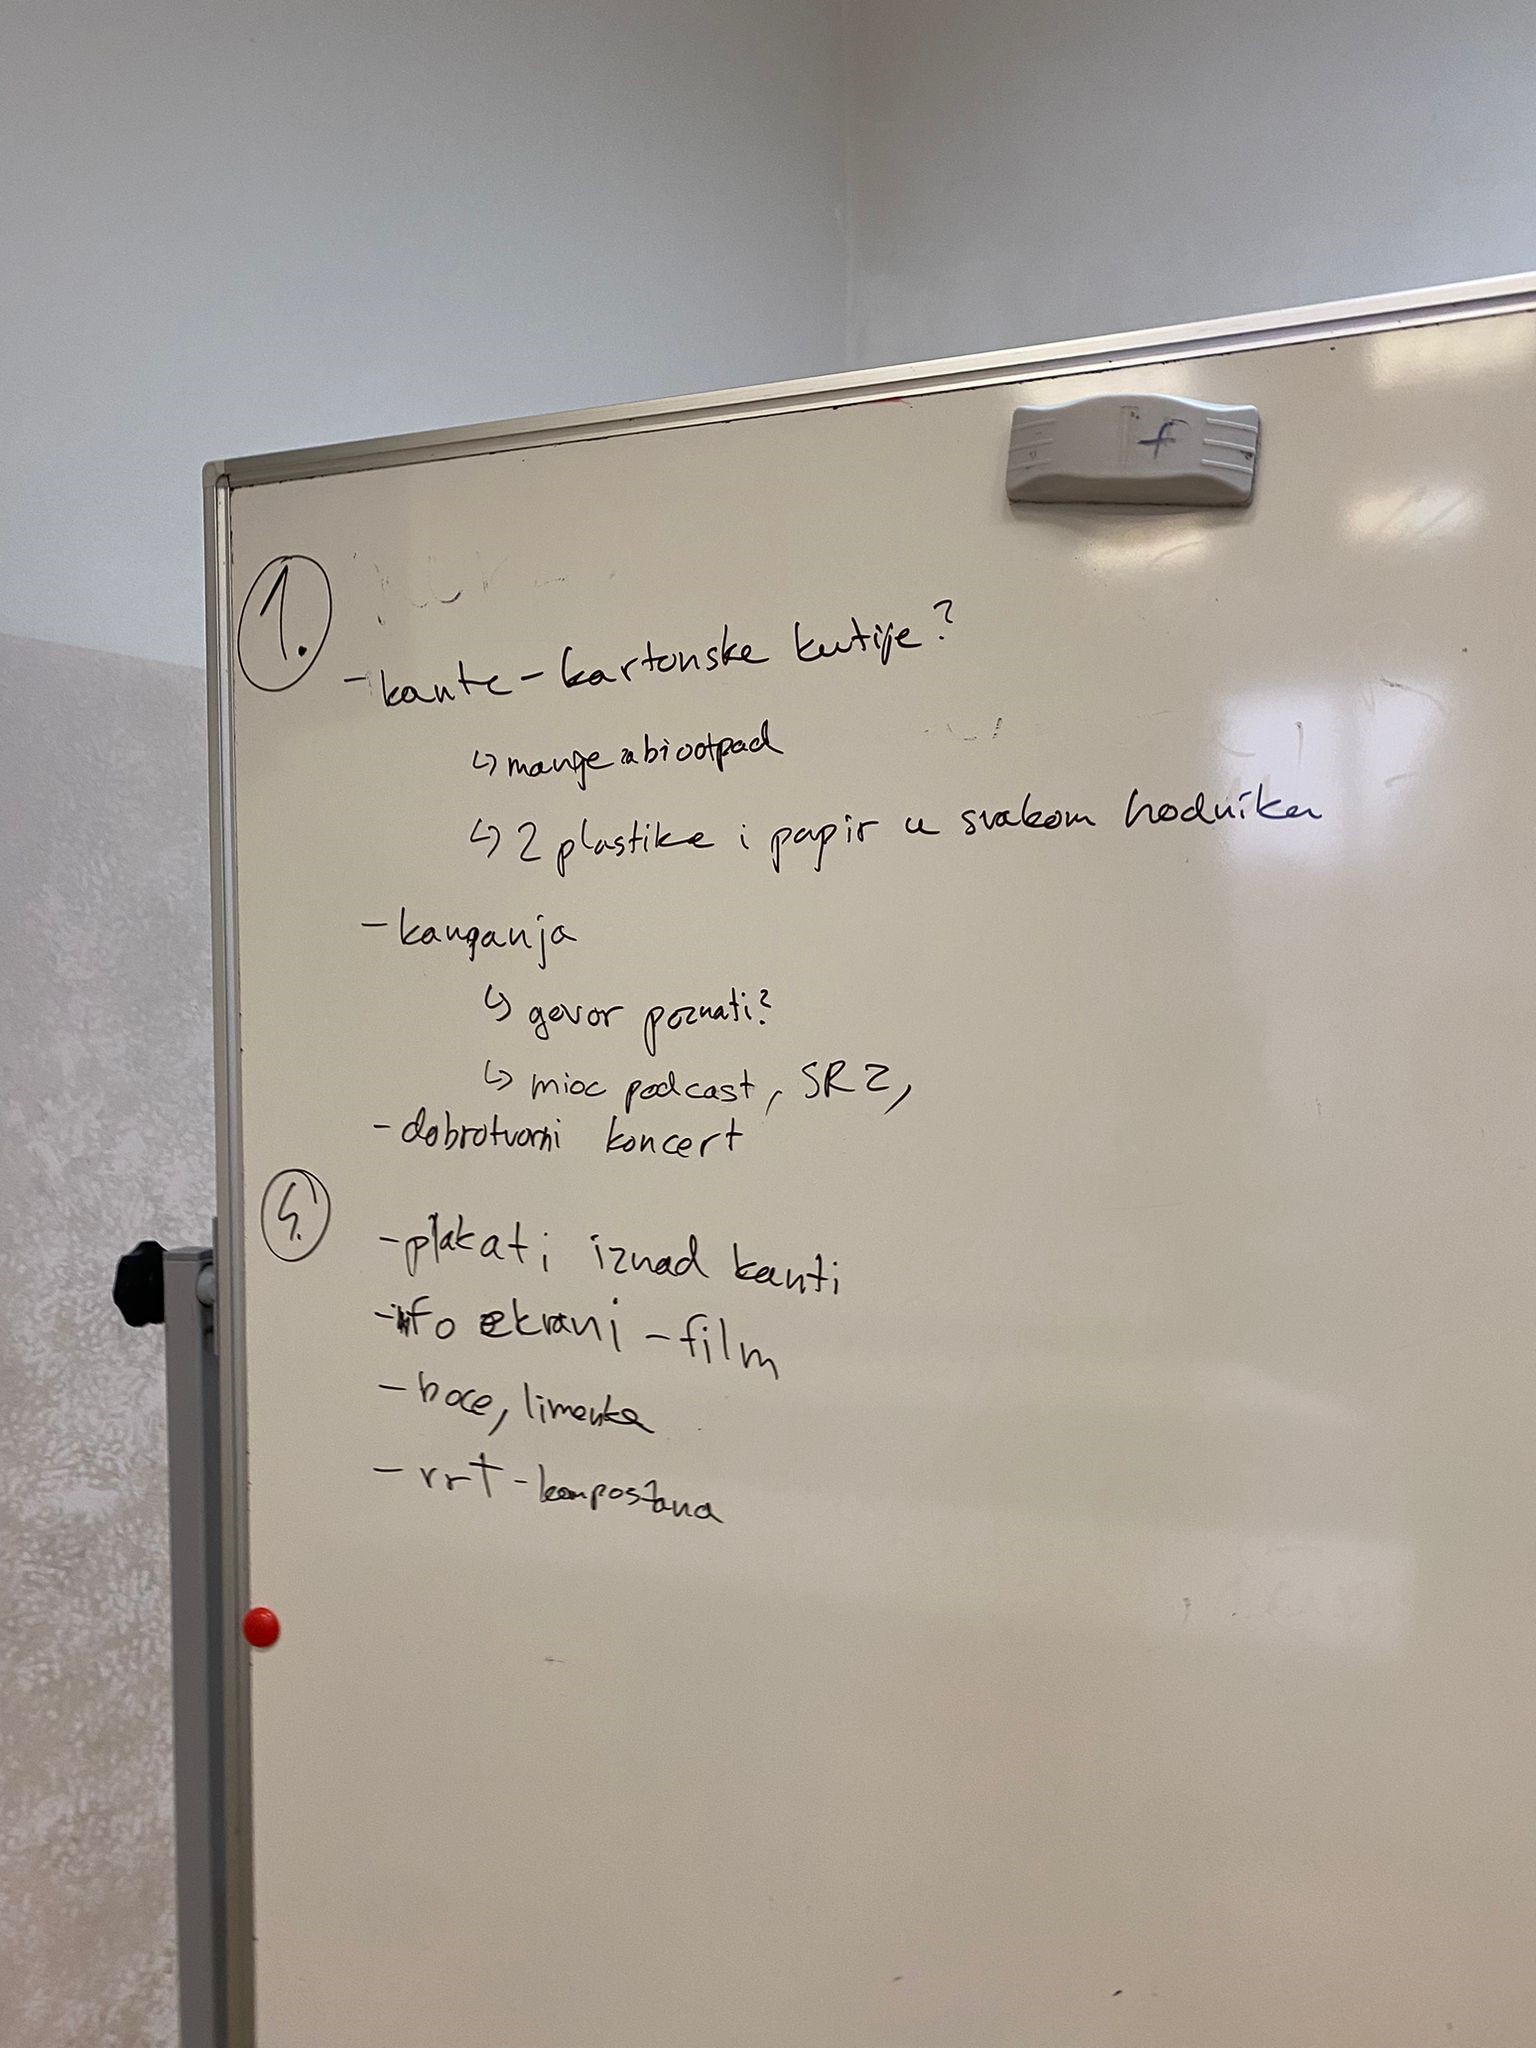 1.
- kante - kartonske kutije?
↳ manje za biootpad
↳ 2 plastike i papir u svakom hodniku
- kanganja
↳ govor poznati?
↳ mioc podcast, SRZ,
- dobrotvorni koncert
- plakati iznad kanti
- info ekrani - film
- boce, limenke
- vrt - kompostana